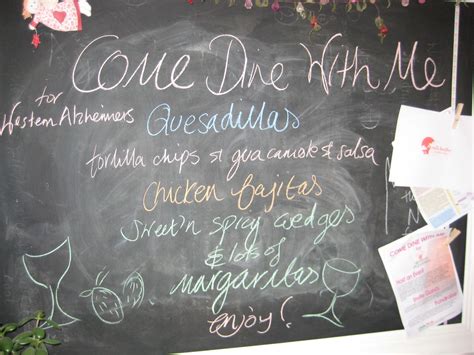 Come Dine With Me
for
Western Alzheimers
Quesadillas
tortilla chips & guacamole & salsa
Chicken Fajitas
Sweet'n spicy wedges
& lots of
margaritas
enjoy!
COME DINE WITH ME